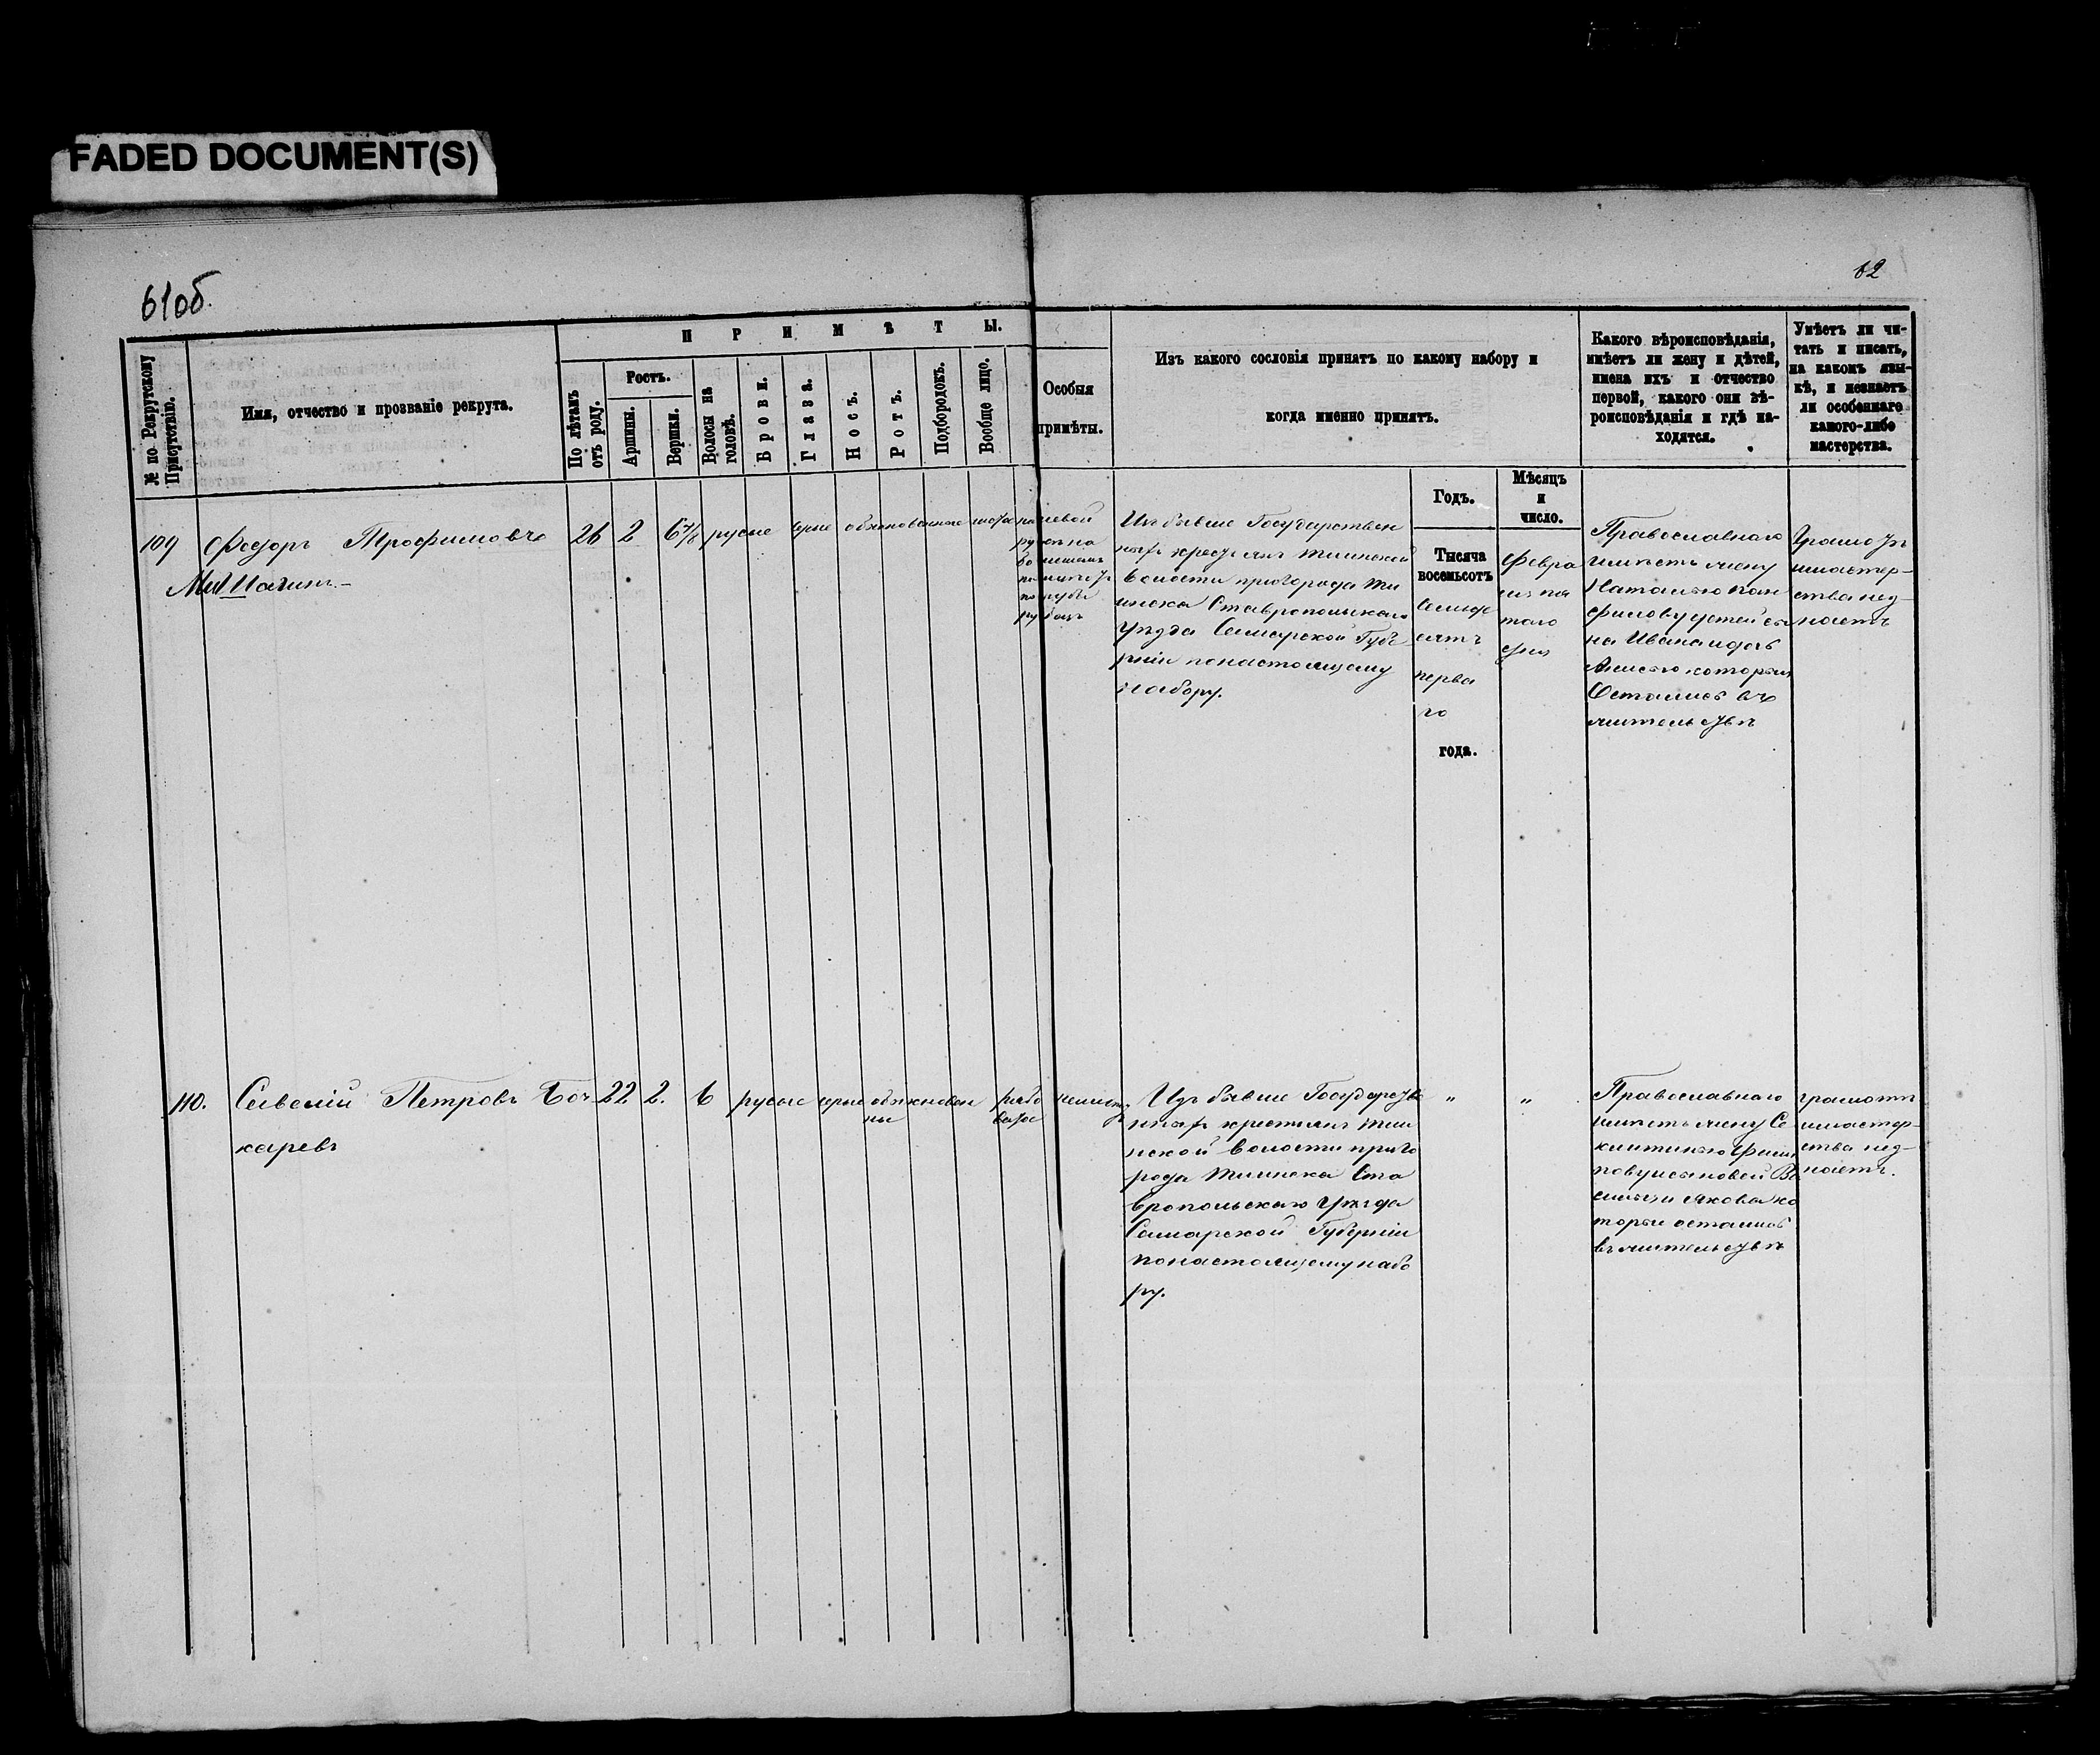 FADED DOCUMENT(S)
61об.
62
№ по Рекрутскому
Присутствію.
Имя, отчество и прозваніе рекрута.
ПРИМѢТЫ.
По лѣтамъ
отъ роду.
Ростъ.
Аршины.
Вершки.
Волосы на
головѣ.
Брови.
Глаза.
Носъ.
Ротъ.
Подбородокъ.
Вообще лицо.
Особыя
примѣты.
Изъ какого сословія принятъ по какому набору и
когда именно принятъ.
Какого вѣроисповѣданія,
имѣетъ ли жену и дѣтей,
имена ихъ и отчество
первой, какого они вѣ-
роисповѣданія и гдѣ на-
ходятся.
Умѣетъ ли чи-
тать и писать,
на какомъ язы-
кѣ, и незнаетъ
ли особеннаго
какого-либо
мастерства.
Годъ.
Мѣсяцъ
и
число.
109 Федоръ Трофимовъ
26 2 6⅞ русые серые обыкновенные
Изъ бывше Государствен
ныхъ крестьянъ Тиинской
волости пригорода Ти
инска Ставропольскаго
уѣзда Самарской Губе
рніи понастоящему
набору.
Тысяча
восемьсотъ
семиде
сятъ
перва
го
года.
Февра
ля пя
таго
дня
Православнаго
имѣетъ жену
Наталью Пан
филову детей сы
на Ивана и дочь
Анисью которыя
остались въ
жительствѣ
Грамотѣ
имастер-
ства нез-
наетъ
110. Савелій Петровъ Боч
каревъ
22 2. 6 русые серые обыкновен
ны
рябо
ватое
неимѣетъ
Изъ бывше Государстве
нныхъ крестьянъ Тии
нской волости приго
рода Тиинска Ста
вропольскаго уѣзда
Самарской Губерніи
понастоящему набо
ру.
" "
Православнаго
имѣетъ жену Се
клитинью Фили
пову исыновей Ва
силья и Якова ко
торыи остались
въ жительствѣ
грамотѣ
имастер-
ства нез-
наетъ.